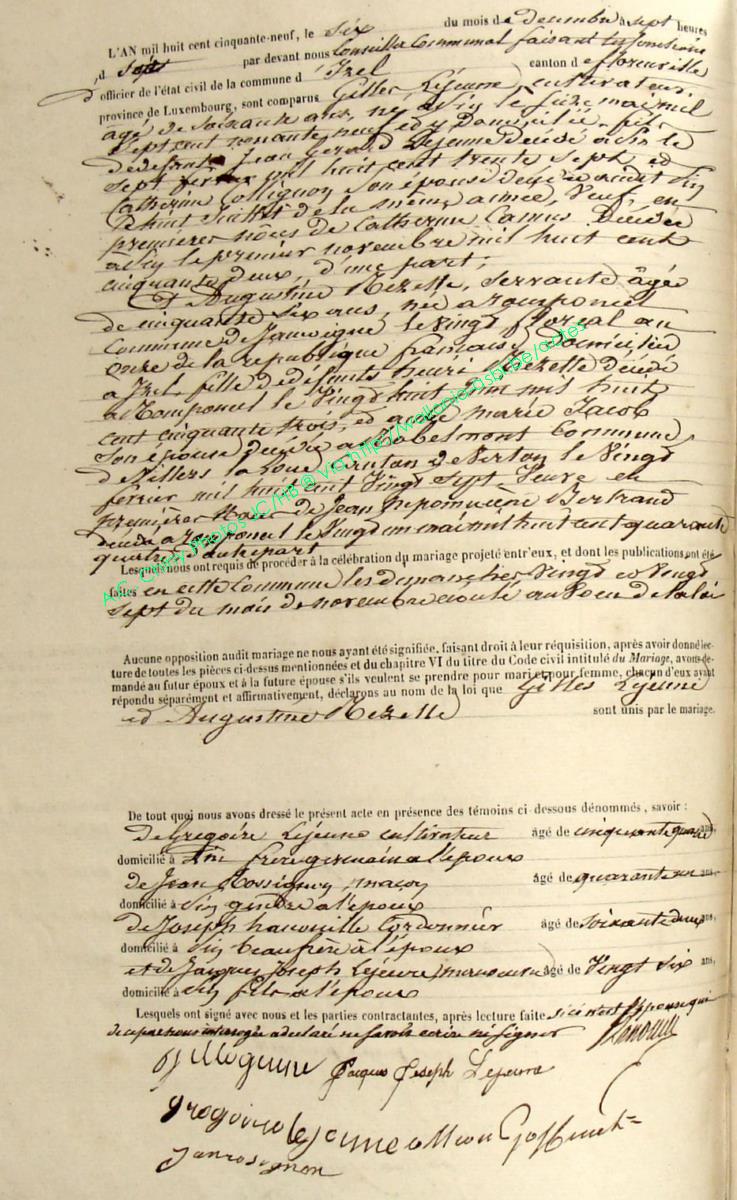 L'AN mil huit cent cinquante-neuf, le six du mois de Decembre à sept heures
d par devant nous Conseiller Communal faisant les fonctions
d'officier de l'état civil de la commune d'Izel canton de florenville
province de Luxembourg, sont comparus Gilles Lejeune, cultivateur,
âgé de soixante ans, né a Sin le seize mai mil
sept cent nonante neuf et y Domicilié, fils
de defunts Jean Lejeune Décédé a Sin le
sept mil huit cent trente sept, et
Catherine Collignon son épouse decedée audit Sin
le huit de la même année, Veuf, en
premières nôces de Catherine Camus Decedée
à Sin le premier novembre mil huit cent
cinquante deux, d'une part;
Et Augustine Rezette, Servante âgée
de cinquante six ans, née a romponcel
Commune de Jamoigne le Vingt floreal an
onze de la republique française, Domiciliée
a Izel, fille de défunts henri Rezette Décédé
a Romponcel le Vingt huit mil huit
cent cinquante trois, et de marie Jacob
Son épouse decedée a Commune
de Villers la Loue Canton de Virton le Vingt
fevrier mil huit cent Vingt sept Veuve en
premières Noces de Jean nepomucene Bertrand
decedé a romponcel le Vingt un mai mil huit cent quarante
quatre d'autre part
A.E - Chiny Photos JC/HB @ Via http://wallonia.dsbr.be/actes
Lesquels nous ont requis de procéder à la célébration du mariage projeté entr'eux, et dont les publications ont été
faites en cette Commune les dimanches Vingt et Vingt
sept du mois de novembre écoulé au voeu de la loi
Aucune opposition audit mariage ne nous ayant été signifiée, faisant droit à leur réquisition, après avoir donné lec-
ture de toutes les pièces ci-dessus mentionnées et du chapitre VI du titre du Code civil intitulé du Mariage, avons de-
mandé au futur époux et à la future épouse s'ils veulent se prendre pour mari et pour femme, chacun d'eux ayant
répondu séparément et affirmativement, déclarons au nom de la loi que Gilles Lejeune
et Augustine Rezette sont unis par le mariage.
De tout quoi nous avons dressé le présent acte en présence des témoins ci-dessous dénommés, savoir :
de Gregoire Lejeune cultivateur âgé de cinquante quatre ans,
domicilié à Sin frere germain a l'epoux
de Jean Rossignon, maçon âgé de quarante un ans,
domicilié à Sin gendre a l'epoux
de Joseph Cordonnier âgé de soixante deux ans,
domicilié à Sin beau frère à l'époux
et de Jacques Joseph Lejeune âgé de Vingt six ans,
domicilié à Sin fils a l'epoux
Lesquels ont signé avec nous et les parties contractantes, après lecture faite si ce n'est l'epouse qui
de ce par nous interrogée a declaré ne savoir ecrire ni signer
G Lejeune Jacques Joseph Lejeune
Gregoire lejeune
Jean rosignon